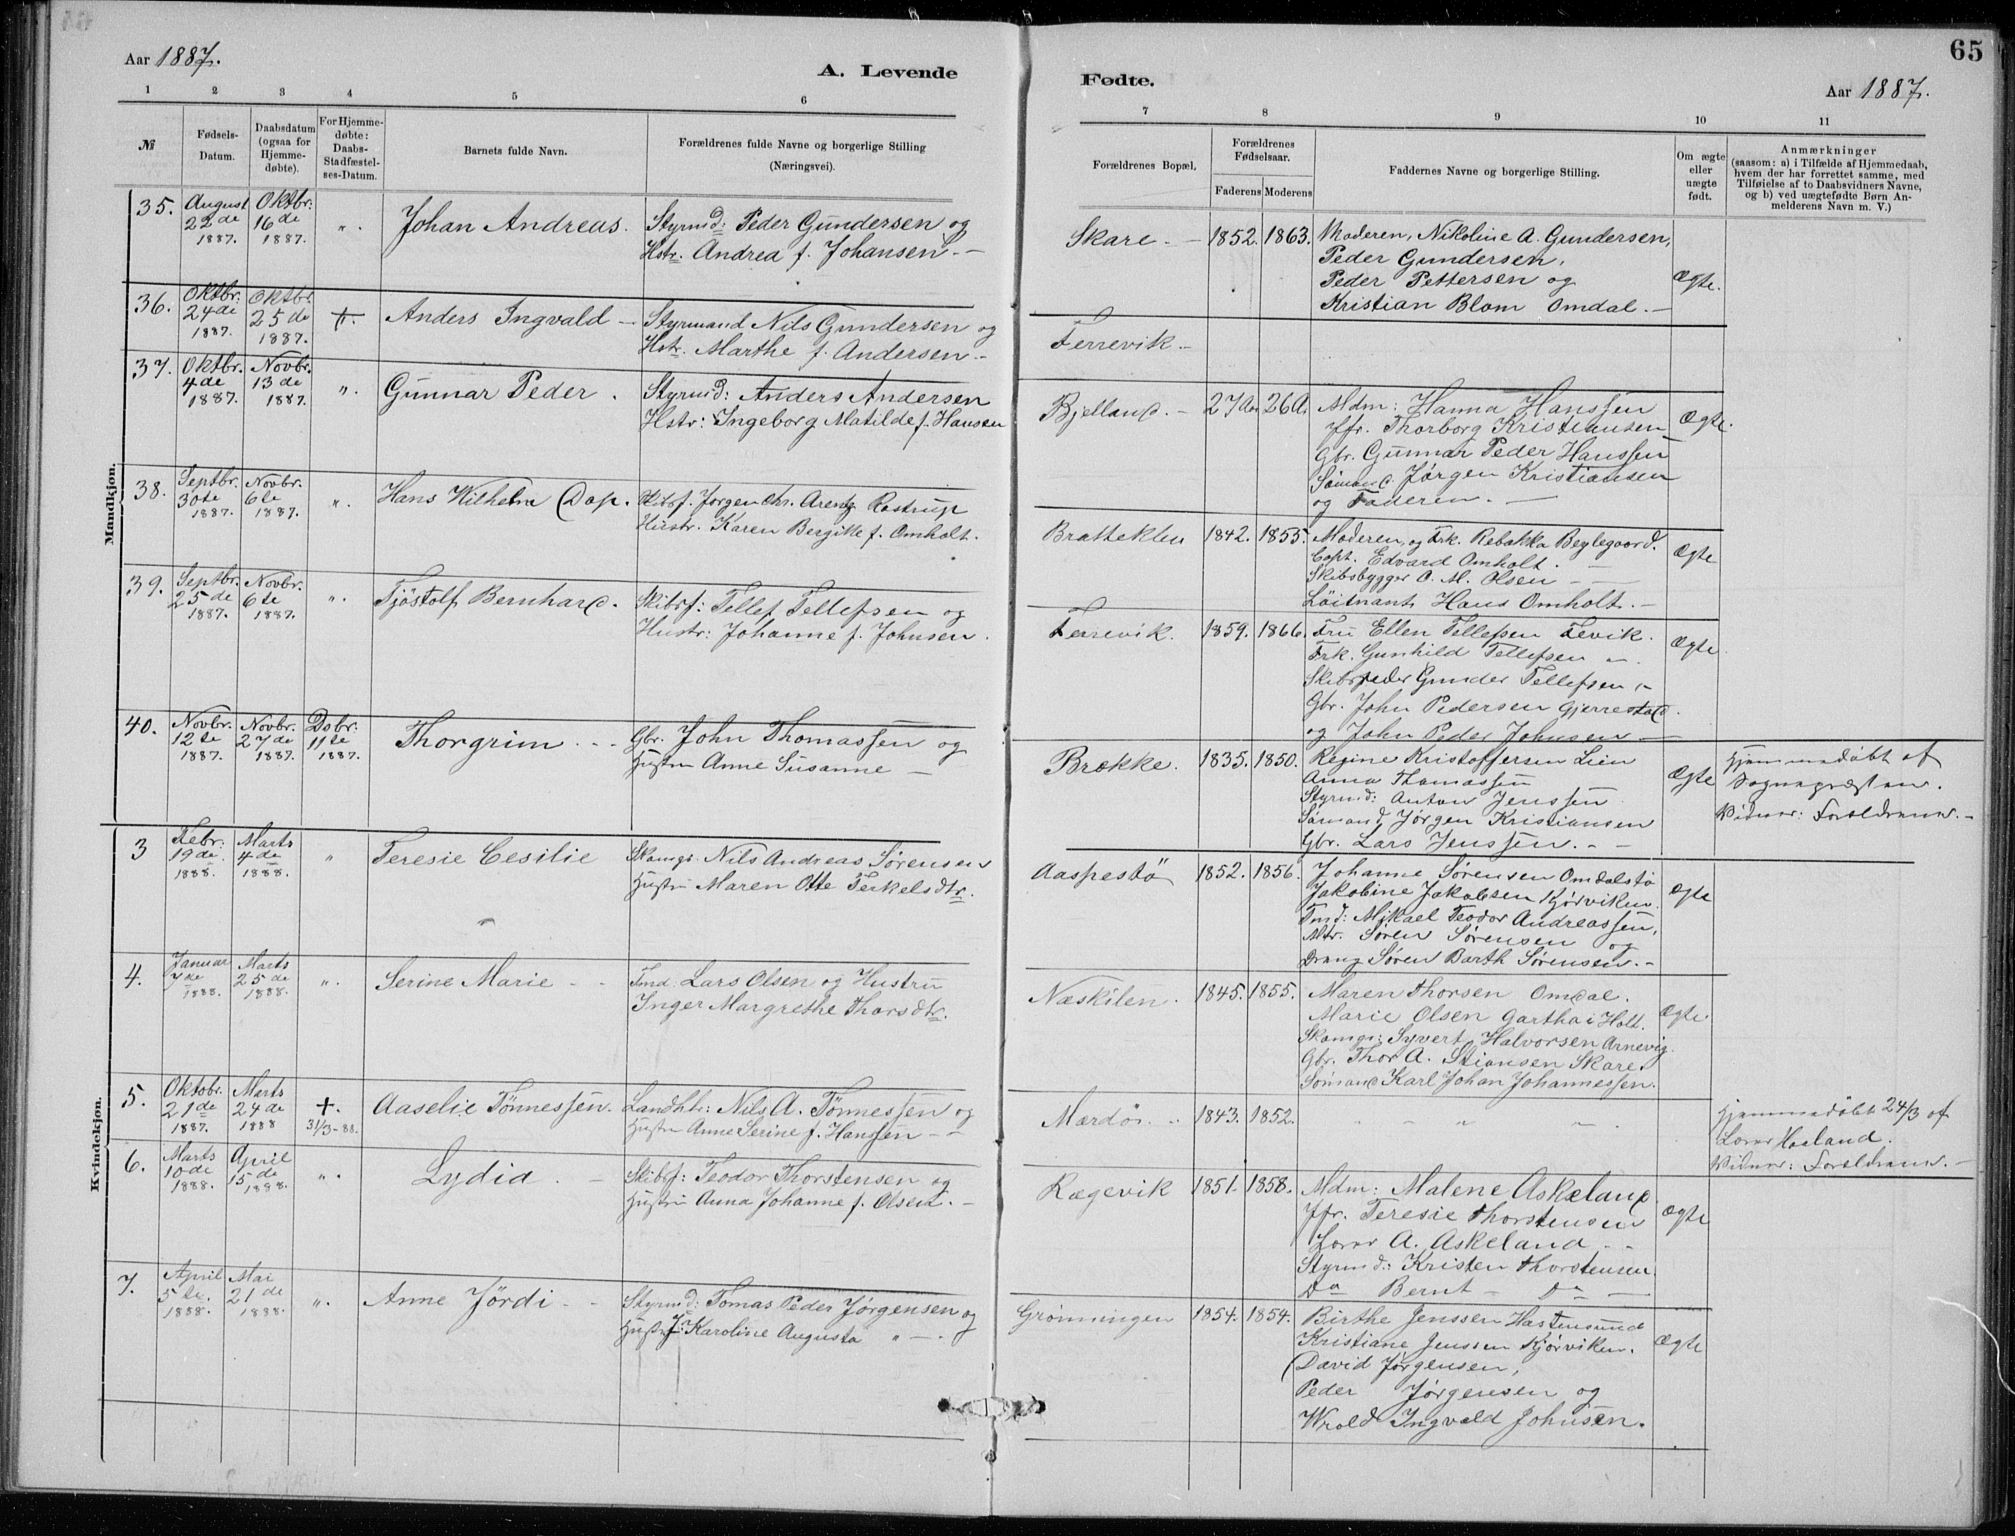 65
Aar 1887.
A. Levende
Fødte.
Aar 1887.
1 2 3 4 5 6
7 8 9 10 11
№
Fødsels-
Datum.
Daabsdatum
(ogsaa for
Hjemme-
døbte).
For Hjemme-
døbte:
Daabs-
Stadfæstel-
ses-Datum.
Barnets fulde Navn.
Forældrenes fulde Navne og borgerlige Stilling
(Næringsvei).
Forældrenes Bopæl.
Forældrenes
Fødselsaar.
Faderens Moderens
Faddernes Navne og borgerlige Stilling.
Om ægte
eller
uægte
født.
Anmærkninger
(saasom: a) i Tilfælde af Hjemmedaab,
hvem der har forrettet samme, med
Tilføielse af to Daabsvidners Navne,
og b) ved uægtefødte Børn An-
melderens Navn m. V.)
Mandkjøn.
35.
August
22de
1887.
Oktbr.
16de
1887.
".
Johan Andreas.
Styrmd: Peder Gundersen og
Hstr. Andrea f. Johansen. —
Skare. —
1852. 1863.
Moderen, Nikoline A. Gundersen,
Peder Gundersen,
Peder Pettersen og
Kristian Blom Omdal. —
Ægte.
36.
Oktbr.
24de
1887.
Oktbr.
25de
1887.
†.
Anders Ingvald —
Styrmand Nils Gundersen og
Hstr. Marthe f. Andersen —
Terrevik. —
37.
Oktbr.
4de
1887.
Novbr.
13de
1887.
".
Gunnar Peder.
Styrmd: Anders Andersen
Hstr: Ingeborg Matilde f. Hansen
Bjelland. —
27 A. 26 A.
Mdm: Hanna Hanssen
Jfr. Thorborg Kristiansen
Gbr. Gunnar Peder Hanssen
Sømand. Jørgen Kristiansen
og Faderen. —
Ægte.
38.
Septbr.
30te
1887.
Novbr.
6te
1887.
".
Hans Wilhelm Dop.
Skibsf. Jørgen Chr. Arentz Rostrup
Hustr. Karen Bergitte f. Omholt.
Bratteklev
1842. 1855.
Moderen, og Frk. Rebekka Beylegaard.
Capt. Edvard Omholt. —
Skibsbygger A. M. Olsen —
Løitnant Hans Omholt. —
Ægte
39.
Septbr.
25de
1887.
Novbr.
6te
1887.
".
Tjöstolf Bernhard.
Skibsf: Tellef Tellefsen og
Hustr: Johanne f. Johnsen.
Terrevik.
1859. 1866.
Fru Ellen Tellefsen Fevik.
Frk. Gunhild Tellefsen "
Skibsreder Gunder Tellefsen "
Gbr. John Pedersen Gjerrestad
og John Peder Johnsen —
Ægte
40.
Novbr.
12te
1887.
Novbr.
27de
1887.
Dsbr.
11te
1887.
Thorgrim. —
Gbr. John Thomassen og
Hustru Anne Susanne —
Brække.
1835. 1850.
Regine Kristoffersen Lien
Anna Thomassen
Styrmd: Anton Jenssen
Sømand Jørgen Kristiansen
Gbr. Lars Jenssen. —
Ægte
Hjemmedøbt af
Sognepræsten.
Vidner: Forældrene. —
Kvindekjøn.
3
Febr:
19de
1888.
Marts
4de
1888.
"
Teresie Cesilie
Skomgr. Nils Andreas Sørensen
Hustru Maren Otte Terkelsdtr.
Aaspestö
1852. 1856.
Johanne Sørensen Omdalstø
Jakobine Jakobsen Kjørviken
Tmd: Mikael Teodor Andreassen,
Mtr. Søren Sørensen og
Dreng Søren Barth Sørensen. —
Ægte
4.
Januar
7de
1888.
Marts
25de
1888.
".
Serine Marie —
Tmd. Lars Olsen og Hustru
Inger Margrethe Thorsdtr.
Næskilen.
1845. 1855.
Maren Thorsen Omdal.
Marie Olsen Gartha i Holt.
Skomgr: Syvert Halvorsen Arnevig.
Gbr. Thor A. Stiansen Skare
Sømand Karl Johan Johannessen.
Ægte.
5.
Oktobr.
21de
1887.
Marts
24de
1888
†.
31/3-88.
Aaselie Tönnessen.
Landhlr: Nils A. Tönnessen og
Hustru Anne Serine f. Hanssen —
Mærdö.
1843. 1852.
" " " "
Hjemmedøbt 24/3 af
Lærer Haaland.
Vidner: Forældrene. —
6.
Marts
10de
1888.
April
15de
1888.
".
Lydia. —
Skibsf: Teodor Thorstensen og
Hustru Anna Johanne f. Olsen. —
Rægevik
1851. 1858.
Mdm: Malene Askeland
Jfr. Teresie Thorstensen
Lærer A. Askeland —
Styrmd: Kristen Thorstensen
Do Bernt — Do —
Ægte
7.
April
5te
1888.
Mai
21de
1888.
".
Anne Jördi —
Styrmd: Tomas Peder Jørgensen og
Hustru: Karoline Augusta " —
Grønningen
1854. 1854.
Birthe Jenssen Hastensund
Kristiane Jenssen Kjørviken.
David Jørgensen,
Peder Jørgensen og
Wrold Ingvald Johnsen.
Ægte